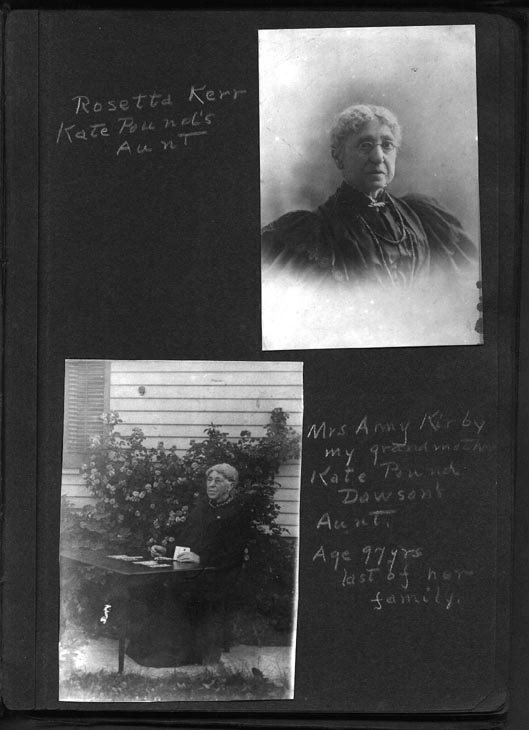 Rosetta Kerr
Kate Pound's
Aunt
Mrs Amy Kirby
my grandmother
Kate Pound
Dawson's
Aunt.
Age 97 yrs
last of her
family.